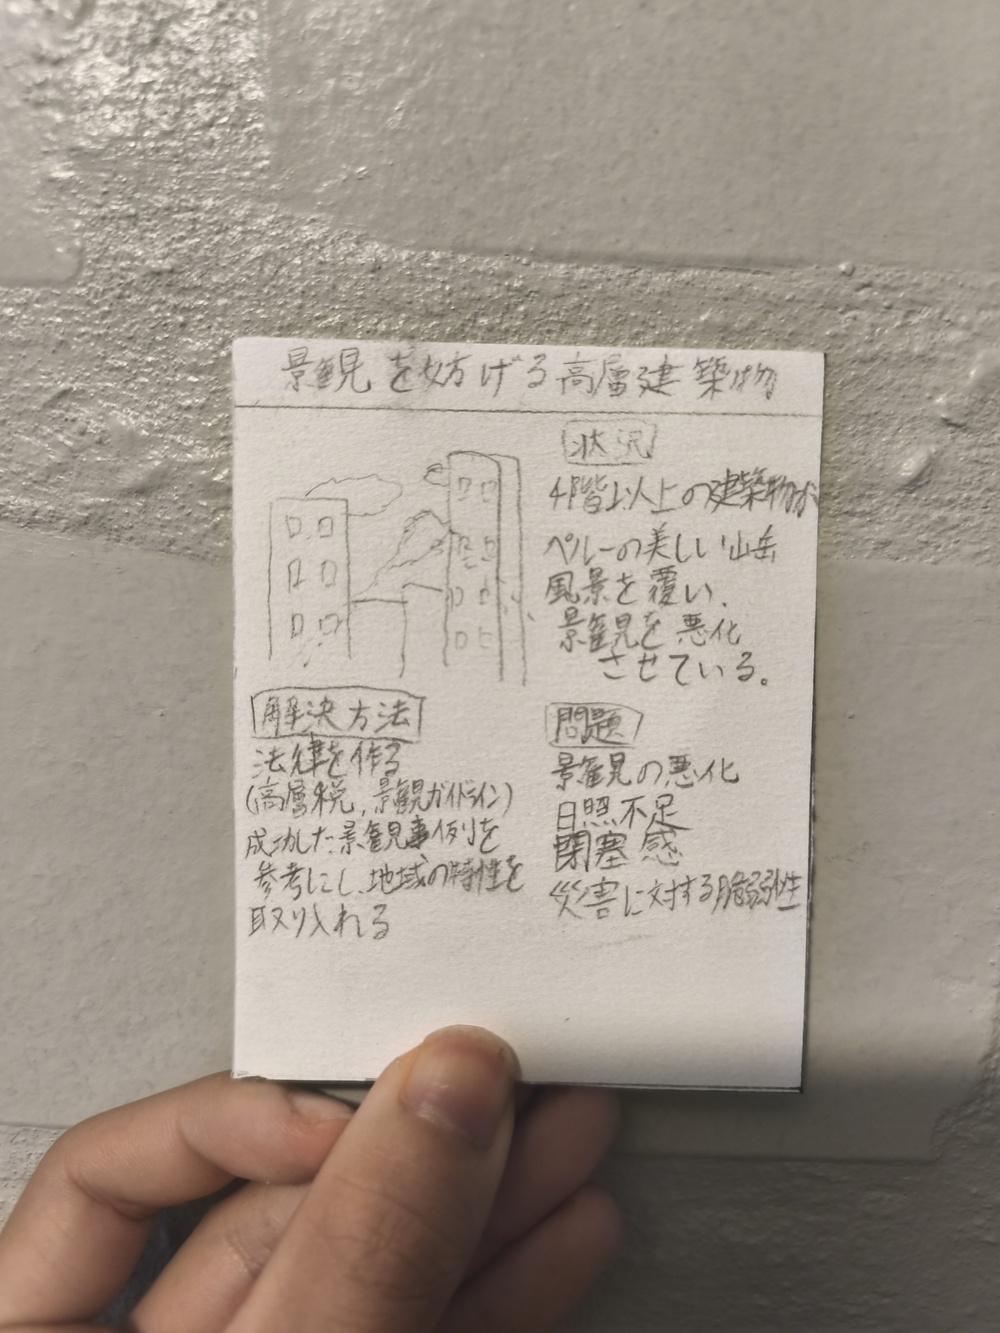 景観を妨げる高層建築物
状況
4階以上の建築物が
ペルーの美しい山岳
風景を覆い、
景観を悪化
させている。
解決方法
法律を作る
(高層税、景観ガイドライン)
成功した景観事例を
参考にし、地域の特性を
取り入れる
問題
景観の悪化
日照不足
閉塞感
災害に対する脆弱性